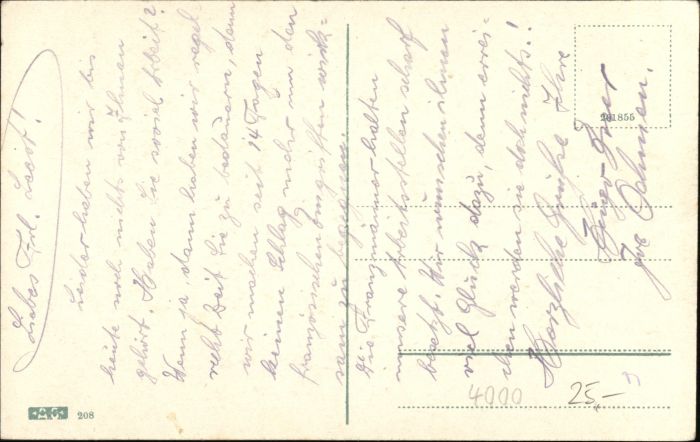 Liebes Frl. Leist!
Leider haben wir bis
heute noch nichts von Ihnen
gehört. Haben Sie soviel Arbeit?
Wenn ja, dann haben wir regel-
recht Zeit Sie zu bedauern, denn
wir machen seit 14 Tagen
keinen Schlag mehr um den
französischen Eingriffen wirk-
sam zu begegnen.
Die Franzmänner halten
unsere Arbeitsstellen scharf
besetzt. Wir wünschen ihnen
viel Glück dazu, denn errei-
chen werden sie doch nichts!
Herzliche Grüße Ihre
201855
A.S. 208
4000
25,-